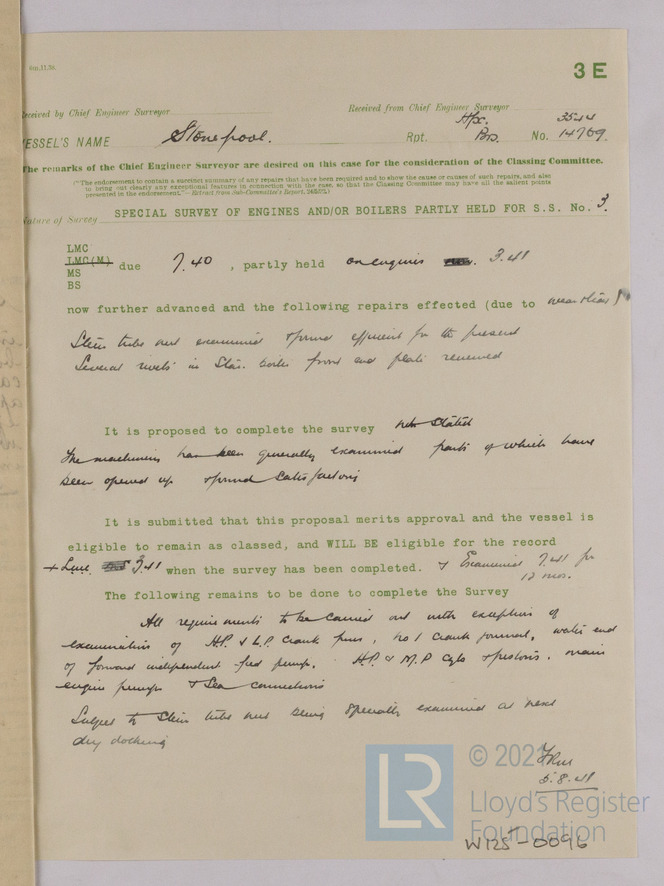 3 E
Received by Chief Engineer Surveyor
Received from Chief Engineer Surveyor
3544
VESSEL'S NAME Stonepool. Rpt. No. 14769.
The remarks of the Chief Engineer Surveyor are desired on this case for the consideration of the Classing Committee.
("The endorsement to contain a succinct summary of any repairs that have been required and to show the cause or causes of such repairs, and also
to bring out clearly any exceptional features in connection with the case, so that the Classing Committee may have all the salient points
presented in the endorsement."—Extract from Sub-Committee's Report,
Nature of Survey SPECIAL SURVEY OF ENGINES AND/OR BOILERS PARTLY HELD FOR S.S. No. 3.
LMC
LMC(M)
MS
BS
due 7.40, partly held on engines 3.41
now further advanced and the following repairs effected (due to
Stern tube nut examined & found efficient for the present
Several rivets in Star. boiler front end plate renewed
It is proposed to complete the survey not stated
The machinery has been generally examined parts of which have
been opened up & found satisfactory
It is submitted that this proposal merits approval and the vessel is
eligible to remain as classed, and WILL BE eligible for the record
+ LMC 3.41 when the survey has been completed. & Examined 7.41 for
12 mos.
The following remains to be done to complete the Survey
All requirements to be carried out with exception of
examination of H.P. & L.P. crank pins, No 1 crank journal, water end
of forward independent feed pump. H.P. & M.P cyls & pistons. main
engine pumps & Sea connections
Subject to Stern tube nut being specially examined at next
dry docking
5.8.41
LR
© 2021
Lloyd's Register
Foundation
W125-0096